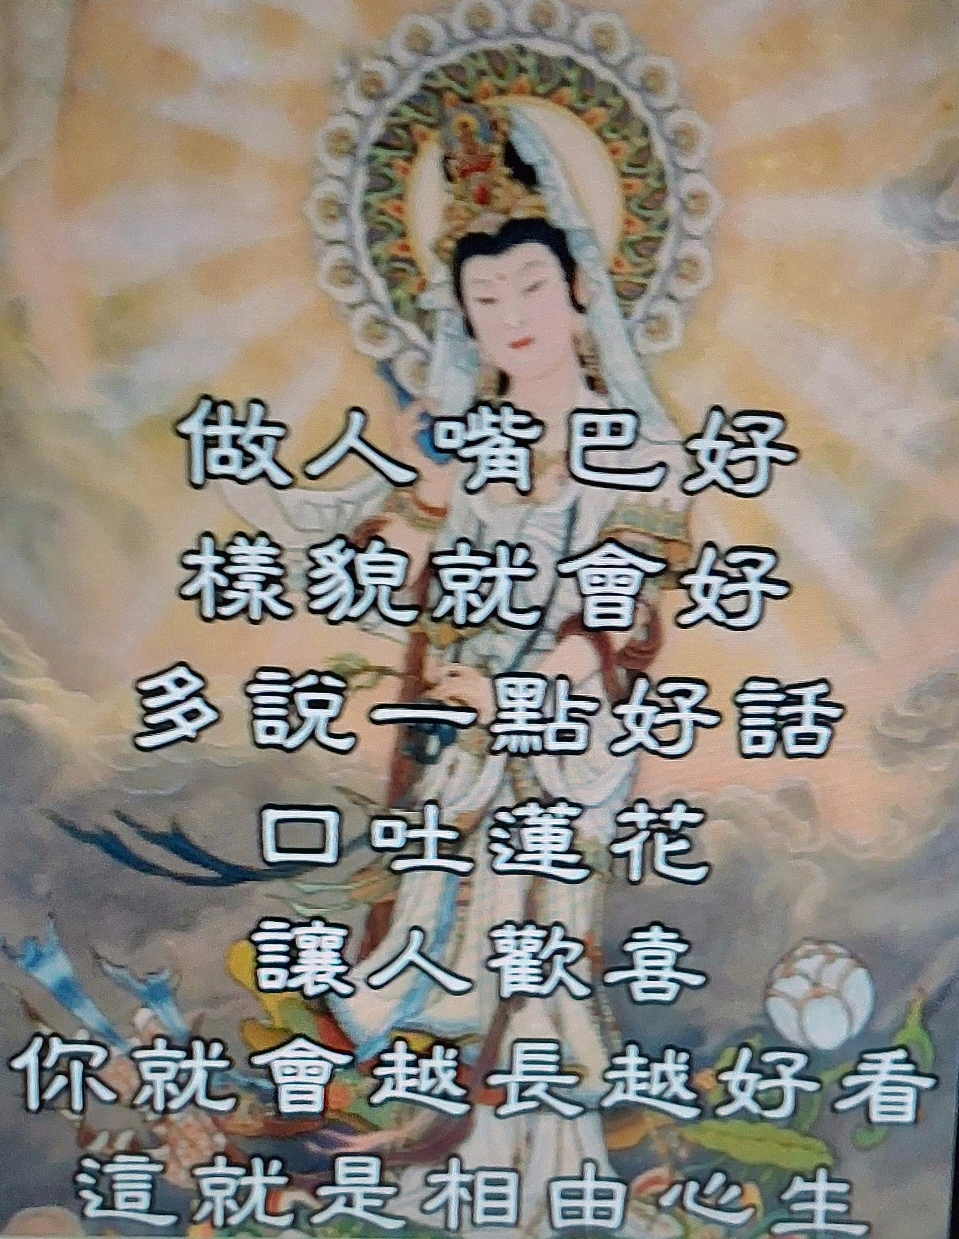 做人嘴巴好
樣貌就會好
多說一點好話
口吐蓮花
讓人歡喜
你就會越長越好看
這就是相由心生